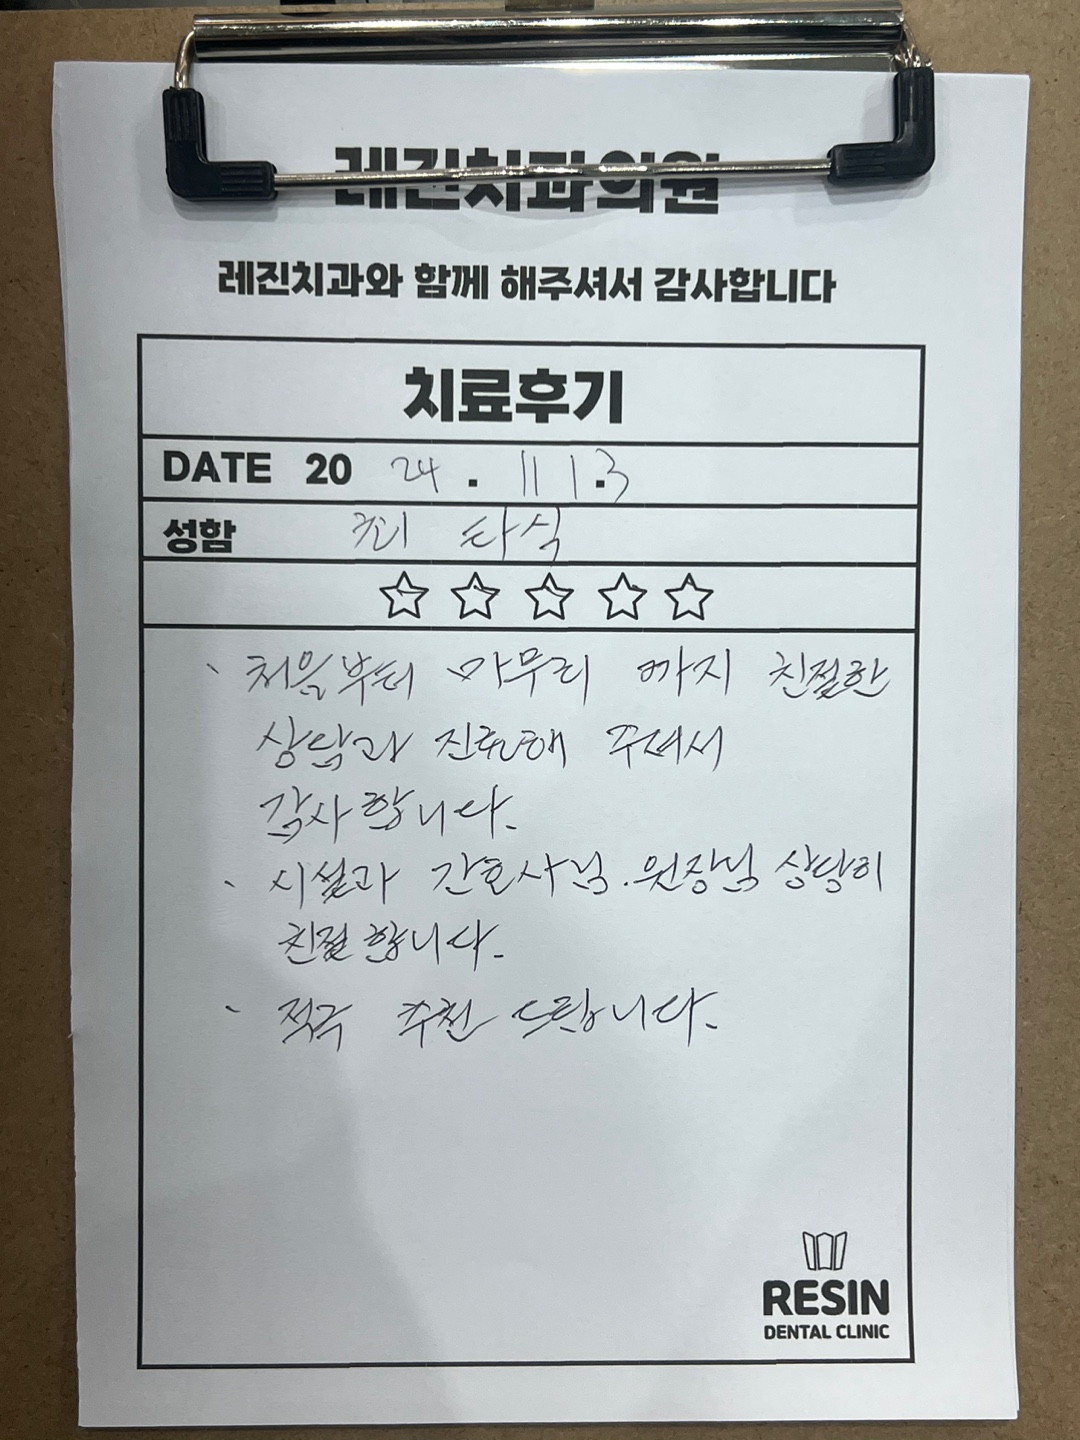 레진치과의원
레진치과와 함께 해주셔서 감사합니다
치료후기
DATE 20 24 . 11 1.3
성함 최 타식
☆ ☆ ☆ ☆ ☆
· 처음부터 마무리 까지 친절한
상담과 진료해 주셔서
감사합니다.
· 시설과 간호사님. 원장님 상당히
친절합니다.
· 적극 추천 드립니다.
RESIN
DENTAL CLINIC